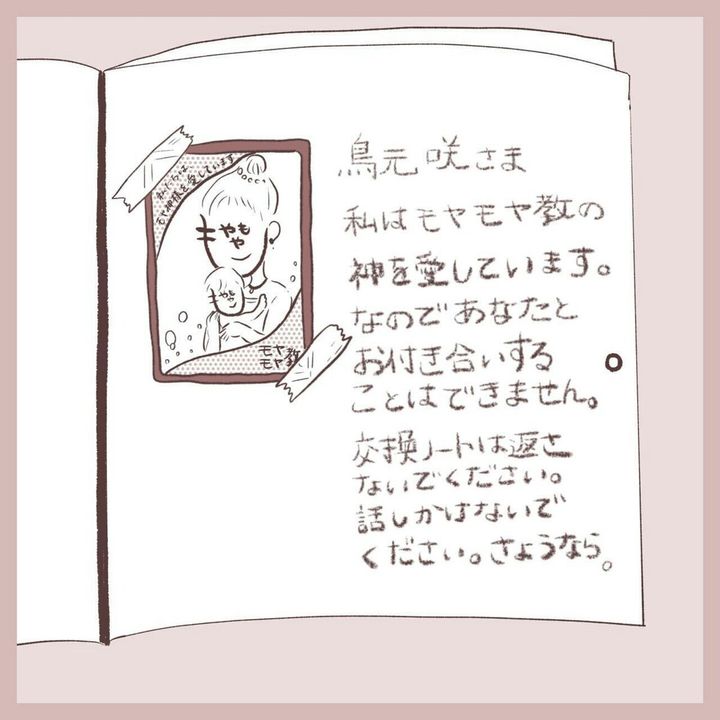 私たちは
モヤ神様を愛しています
モヤ
モヤ教
鳥元 咲さま
私はモヤモヤ教の
神を愛しています。
なのであなたと
お付き合いする
ことはできません。
交換ノートは返さ
ないでください。
話しかけないで
ください。さようなら。